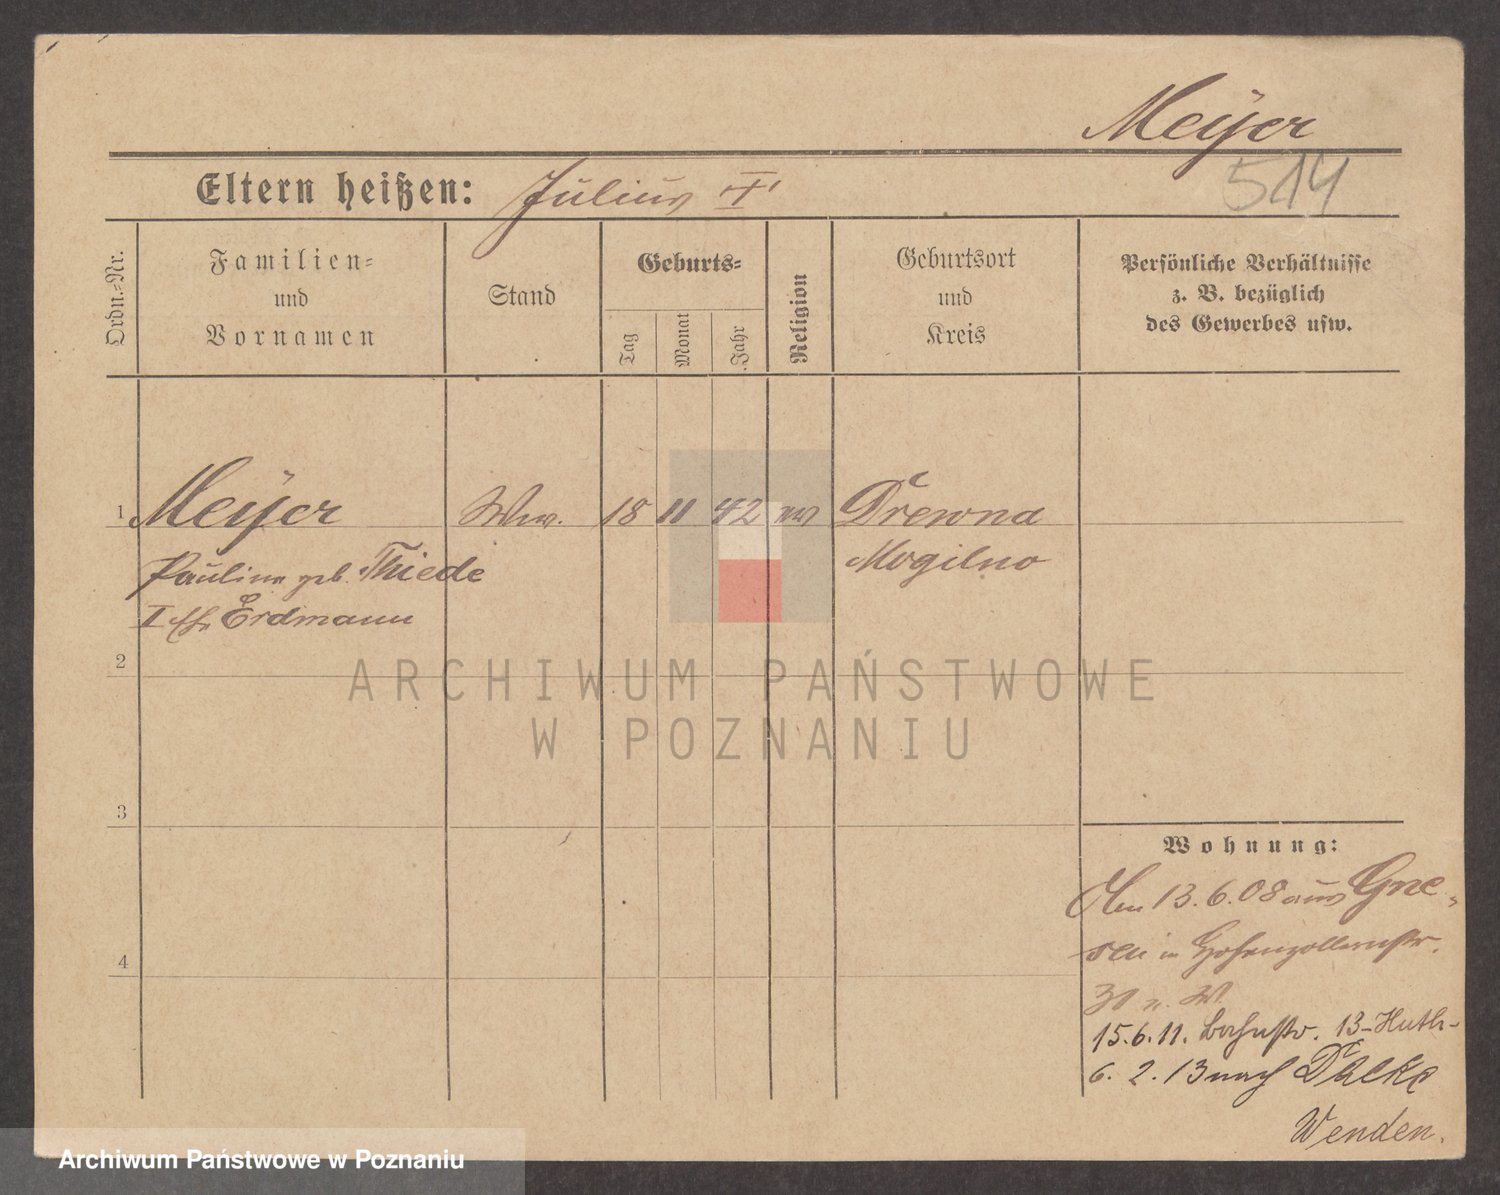 Meÿer
514
Eltern heißen: Julius
Ordn.-Nr.
Familien-
und
Vornamen
Stand
Geburts-
Tag
Monat
Jahr
Religion
Geburtsort
und
Kreis
Persönliche Verhältnisse
z. B. bezüglich
des Gewerbes usw.
1 Meÿer Ww. 18 11 42 ev Drewna
Pauline geb. Thiede Mogilno
Erdmann
2
ARCHIWUM PAŃSTWOWE
W POZNANIU
3
Wohnung:
13.6.08 aus Gne-
sen in Hohenzollernstr.
15.6.11. Bahnstr. 13-Huth-
6.2.13 nach
Wenden.
4
Archiwum Państwowe w Poznaniu